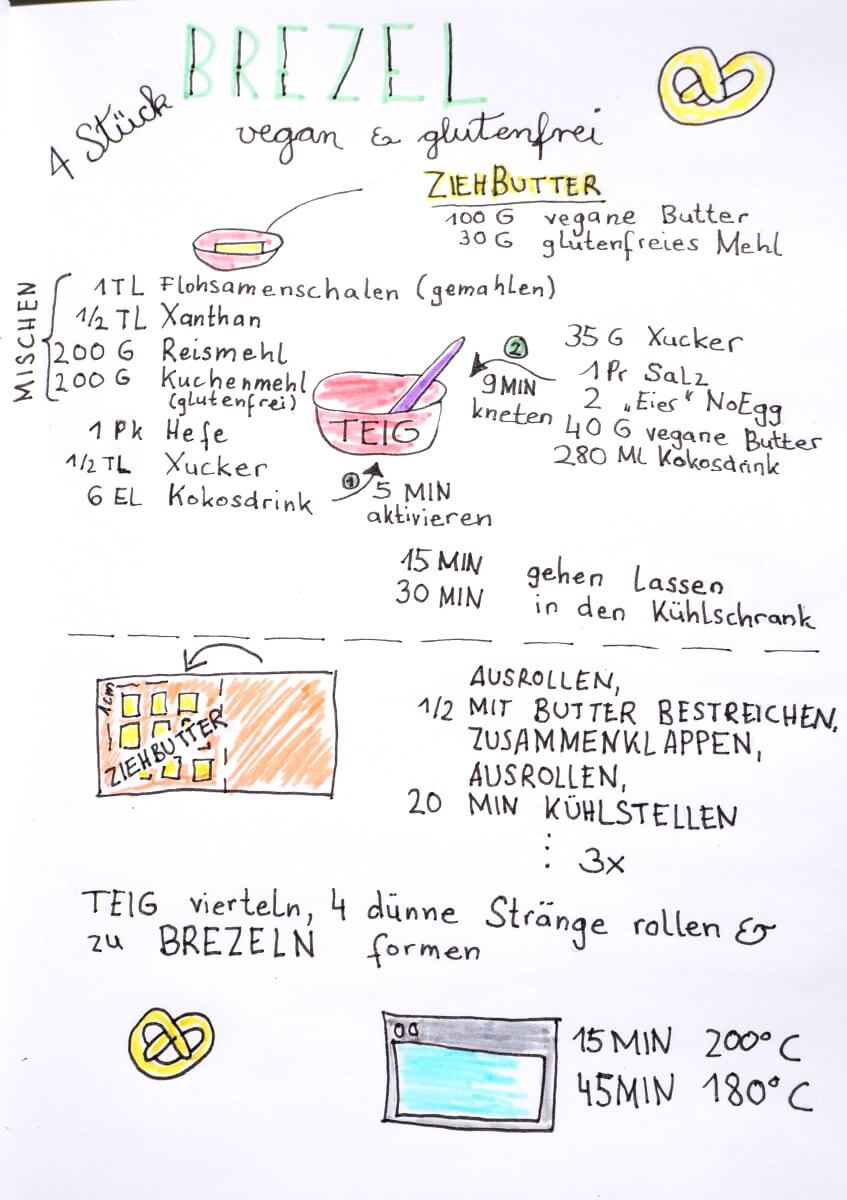 BREZEL
4 Stück
vegan & glutenfrei
ZIEHBUTTER
100 G vegane Butter
30 G glutenfreies Mehl
MISCHEN
1TL Flohsamenschalen (gemahlen)
1/2 TL Xanthan
200 G Reismehl
200 G Kuchenmehl
(glutenfrei)
1 Pk Hefe
1/2 TL Xucker
6 EL Kokosdrink
TEIG
1
5 MIN
aktivieren
2
9 MIN
kneten
35 G Xucker
1 Pr Salz
2 „Eies“ NoEgg
40 G vegane Butter
280 ML Kokosdrink
15 MIN gehen lassen
30 MIN in den Kühlschrank
1cm
ZIEHBUTTER
AUSROLLEN,
1/2 MIT BUTTER BESTREICHEN,
ZUSAMMENKLAPPEN,
AUSROLLEN,
20 MIN KÜHLSTELLEN
3x
TEIG vierteln, 4 dünne Stränge rollen &
zu BREZELN formen
15 MIN 200°C
45MIN 180°C